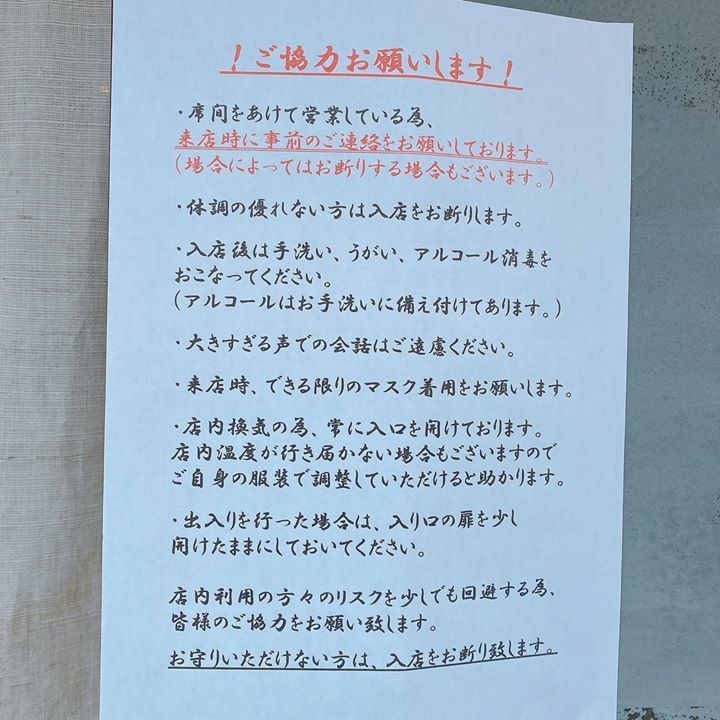 ！ご協力お願いします！
・席間をあけて営業している為、
来店時に事前のご連絡をお願いしております。
(場合によってはお断りする場合もございます。)
・体調の優れない方は入店をお断りします。
・入店後は手洗い、うがい、アルコール消毒を
おこなってください。
(アルコールはお手洗いに備え付けてあります。)
・大きすぎる声での会話はご遠慮ください。
・来店時、できる限りのマスク着用をお願いします。
・店内換気の為、常に入口を開けております。
店内温度が行き届かない場合もございますので
ご自身の服装で調整していただけると助かります。
・出入りを行った場合は、入り口の扉を少し
開けたままにしておいてください。
店内利用の方々のリスクを少しでも回避する為、
皆様のご協力をお願い致します。
お守りいただけない方は、入店をお断り致します。